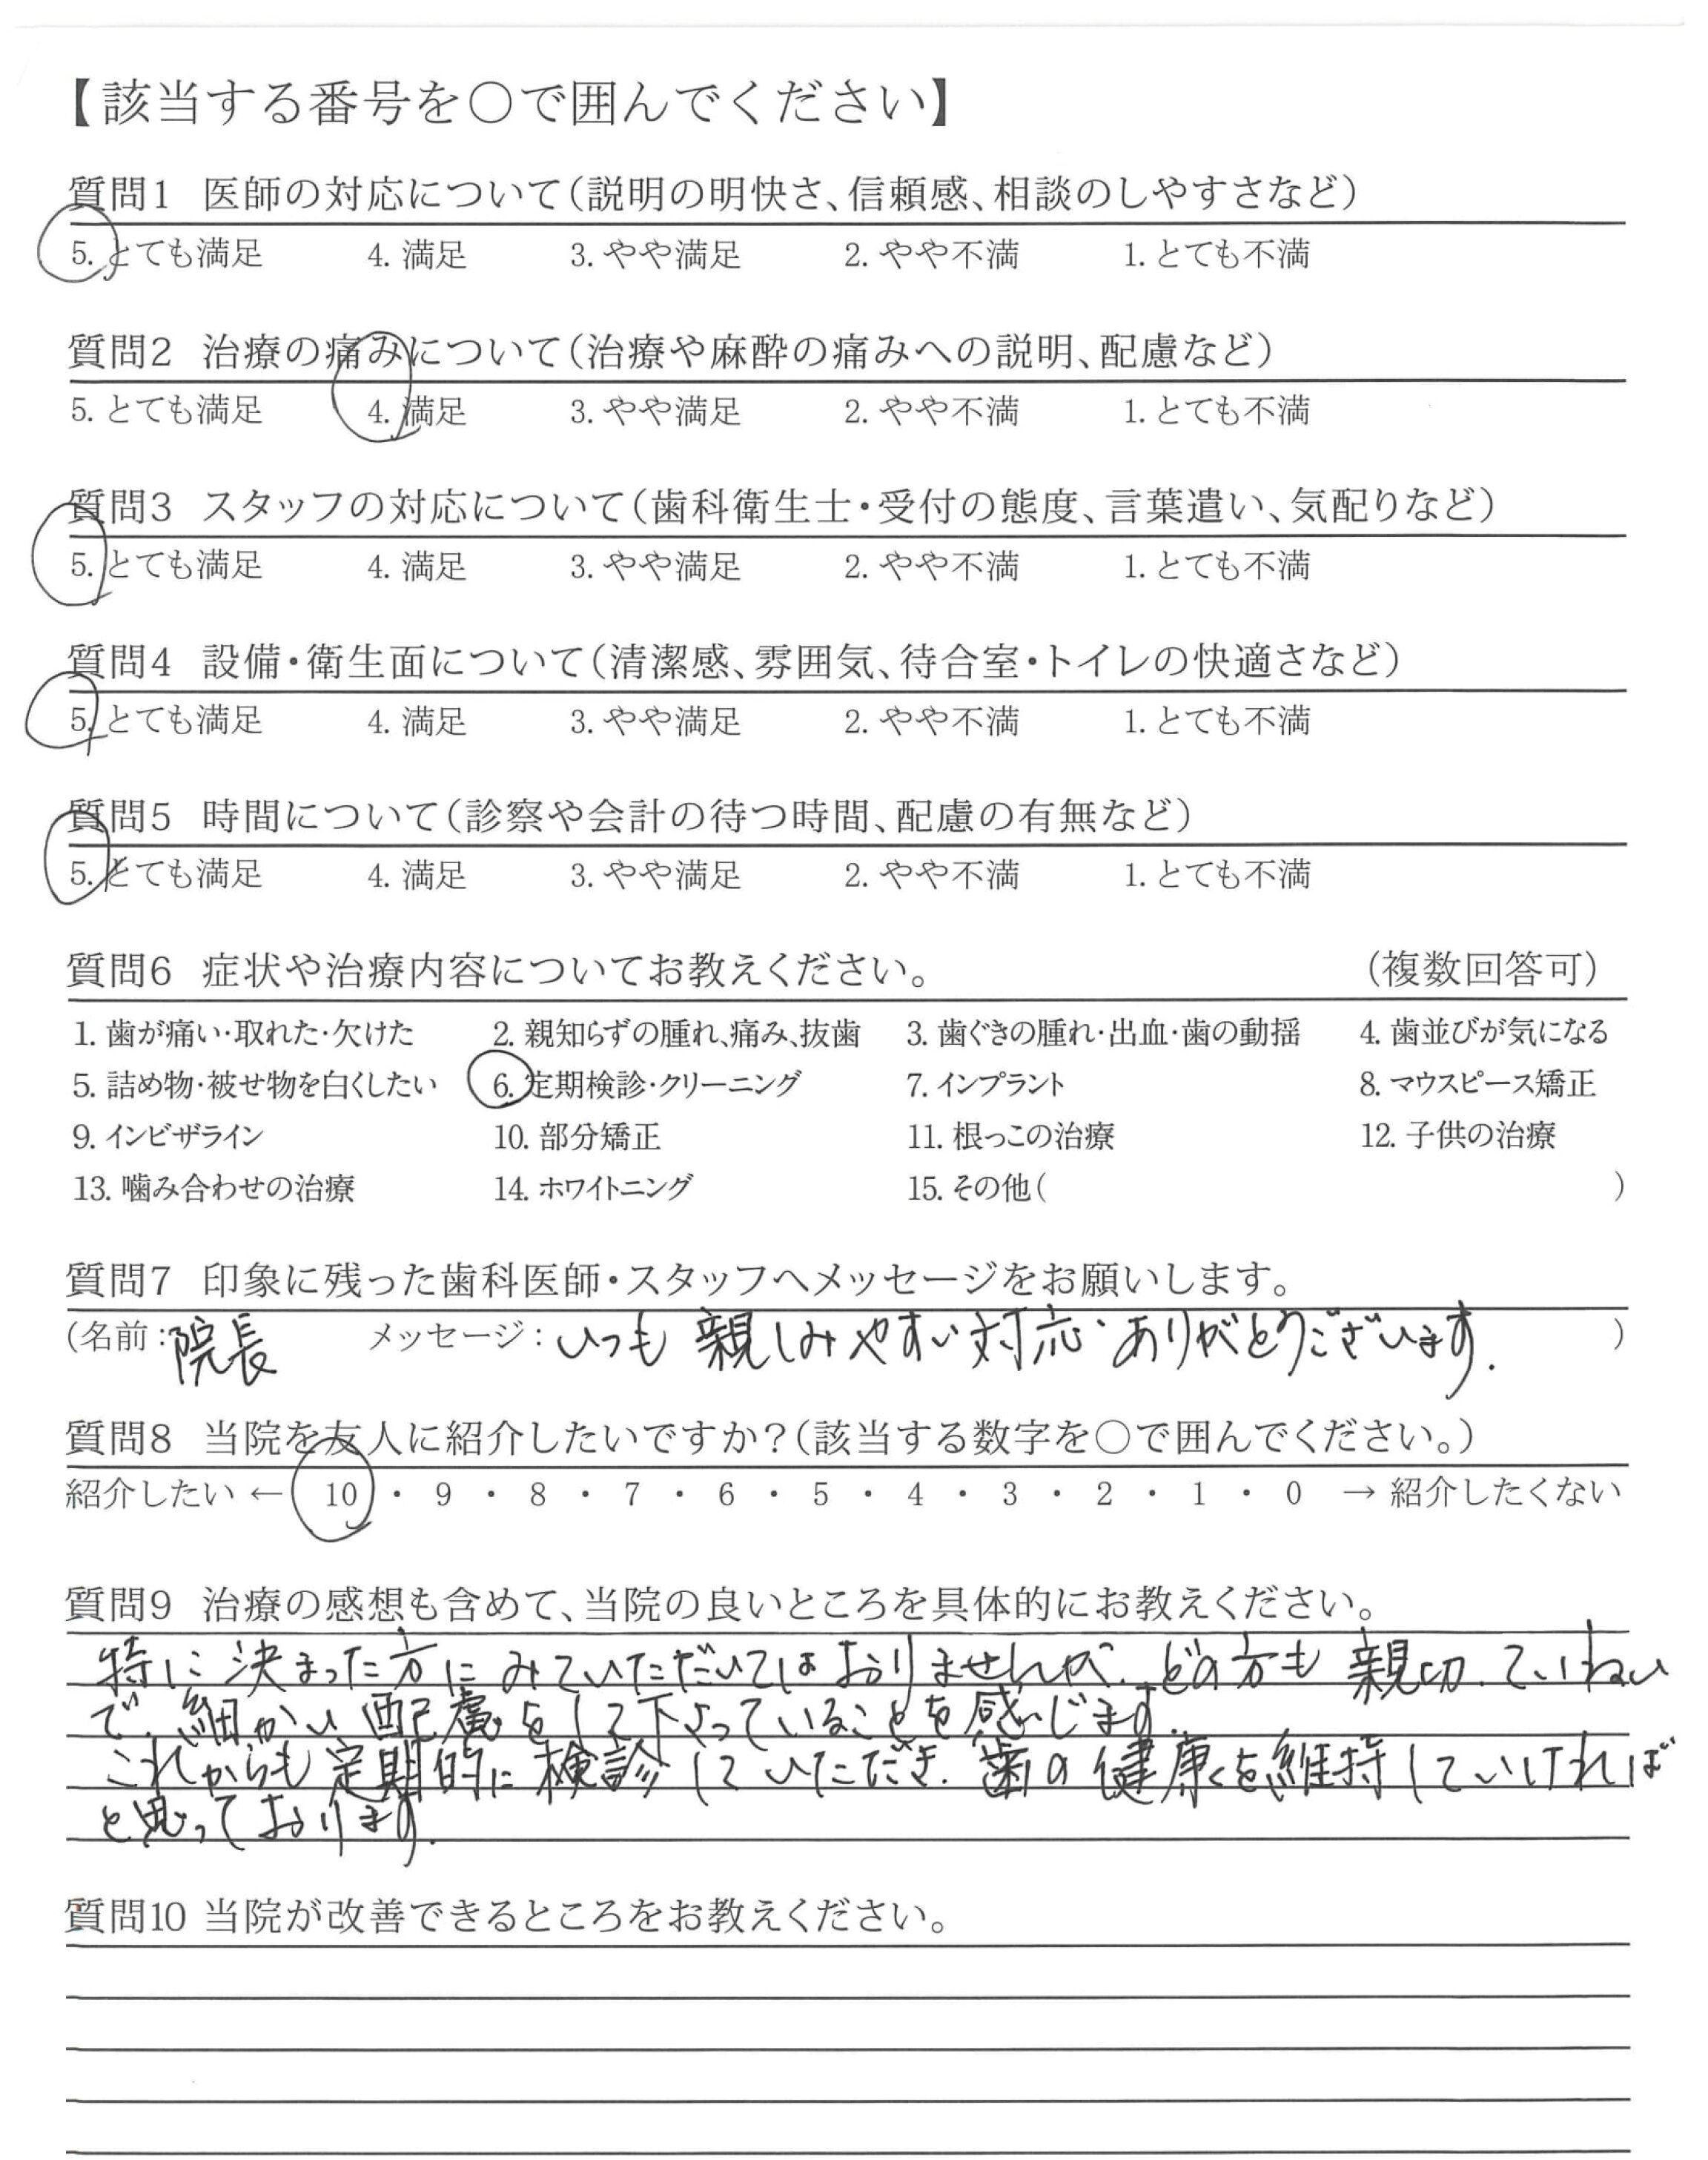 【該当する番号を○で囲んでください】
質問1 医師の対応について(説明の明快さ、信頼感、相談のしやすさなど)
5. とても満足 4. 満足 3. やや満足 2. やや不満 1. とても不満
質問2 治療の痛みについて(治療や麻酔の痛みへの説明、配慮など)
5. とても満足 4. 満足 3. やや満足 2. やや不満 1. とても不満
質問3 スタッフの対応について(歯科衛生士・受付の態度、言葉遣い、気配りなど)
5. とても満足 4. 満足 3. やや満足 2. やや不満 1. とても不満
質問4 設備・衛生面について(清潔感、雰囲気、待合室・トイレの快適さなど)
5. とても満足 4. 満足 3. やや満足 2. やや不満 1. とても不満
質問5 時間について(診察や会計の待つ時間、配慮の有無など)
5. とても満足 4. 満足 3. やや満足 2. やや不満 1. とても不満
質問6 症状や治療内容についてお教えください。 (複数回答可)
1. 歯が痛い・取れた・欠けた 2. 親知らずの腫れ、痛み、抜歯 3. 歯ぐきの腫れ・出血・歯の動揺 4. 歯並びが気になる
5. 詰め物・被せ物を白くしたい 6. 定期検診・クリーニング 7. インプラント 8. マウスピース矯正
9. インビザライン 10. 部分矯正 11. 根っこの治療 12. 子供の治療
13. 噛み合わせの治療 14. ホワイトニング 15. その他( )
質問7 印象に残った歯科医師・スタッフへメッセージをお願いします。
(名前：院長 メッセージ：いつも親しみやすい対応、ありがとうございます。 )
質問8 当院を友人に紹介したいですか？(該当する数字を○で囲んでください。)
紹介したい ← 10 ・ 9 ・ 8 ・ 7 ・ 6 ・ 5 ・ 4 ・ 3 ・ 2 ・ 1 ・ 0 → 紹介したくない
質問9 治療の感想も含めて、当院の良いところを具体的にお教えください。
特に決まった方にみていただいてはおりませんが、どの方も親切、ていねい
で、細かい配慮をして下さっていることを感じます。
これからも定期的に検診していただき、歯の健康を維持していければ
と思っております。
質問10 当院が改善できるところをお教えください。